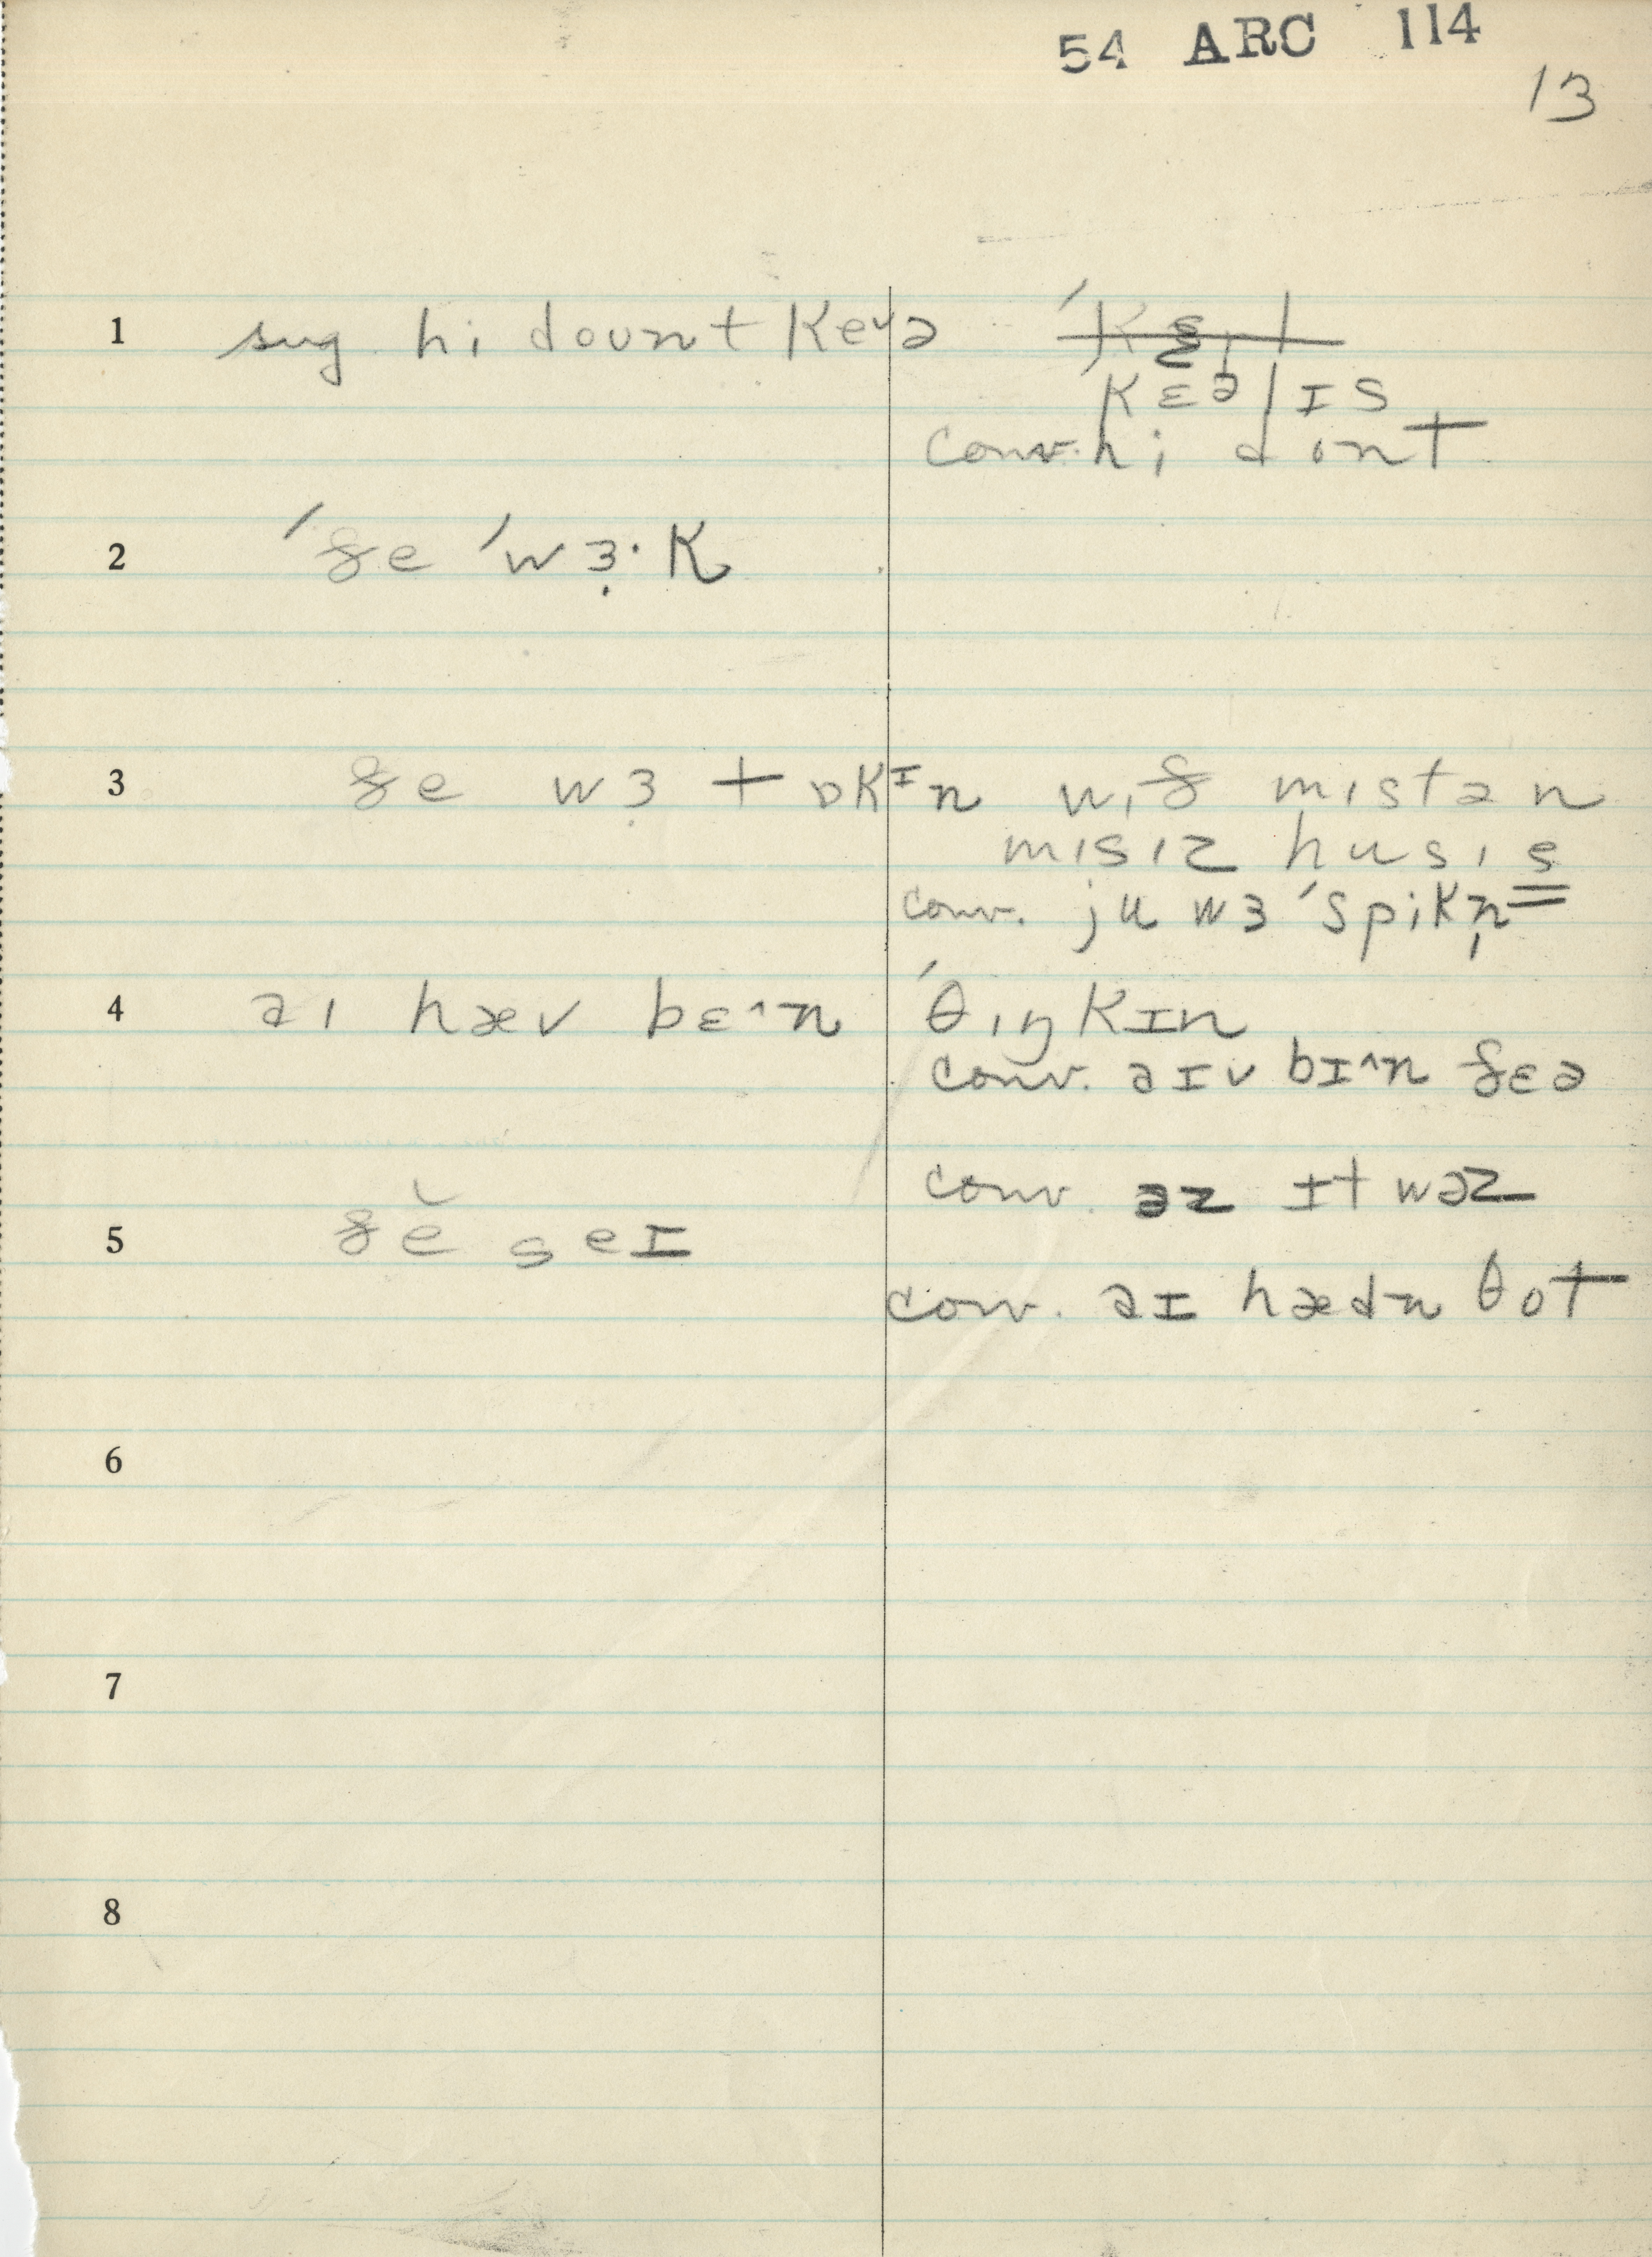 54 ARC 114
13
1 sug hi dount keᵛə
ˈkɛəlɪs
conv. hi dont
2 ˈðe ˈwɜ̣·k
3 ðe wɜ̣ tɒkᴵn wið mistən
misiz husiȩ
conv. ju wɜ ˈspikn̩
4 aı hæv bɛ^n ˈθıŋkɪn
conv. aɪv bɪ^n ðɛə
conv. əz ɪt wəz
5 ðĕ seɪ
conv. aɪ hædn θot
6
7
8